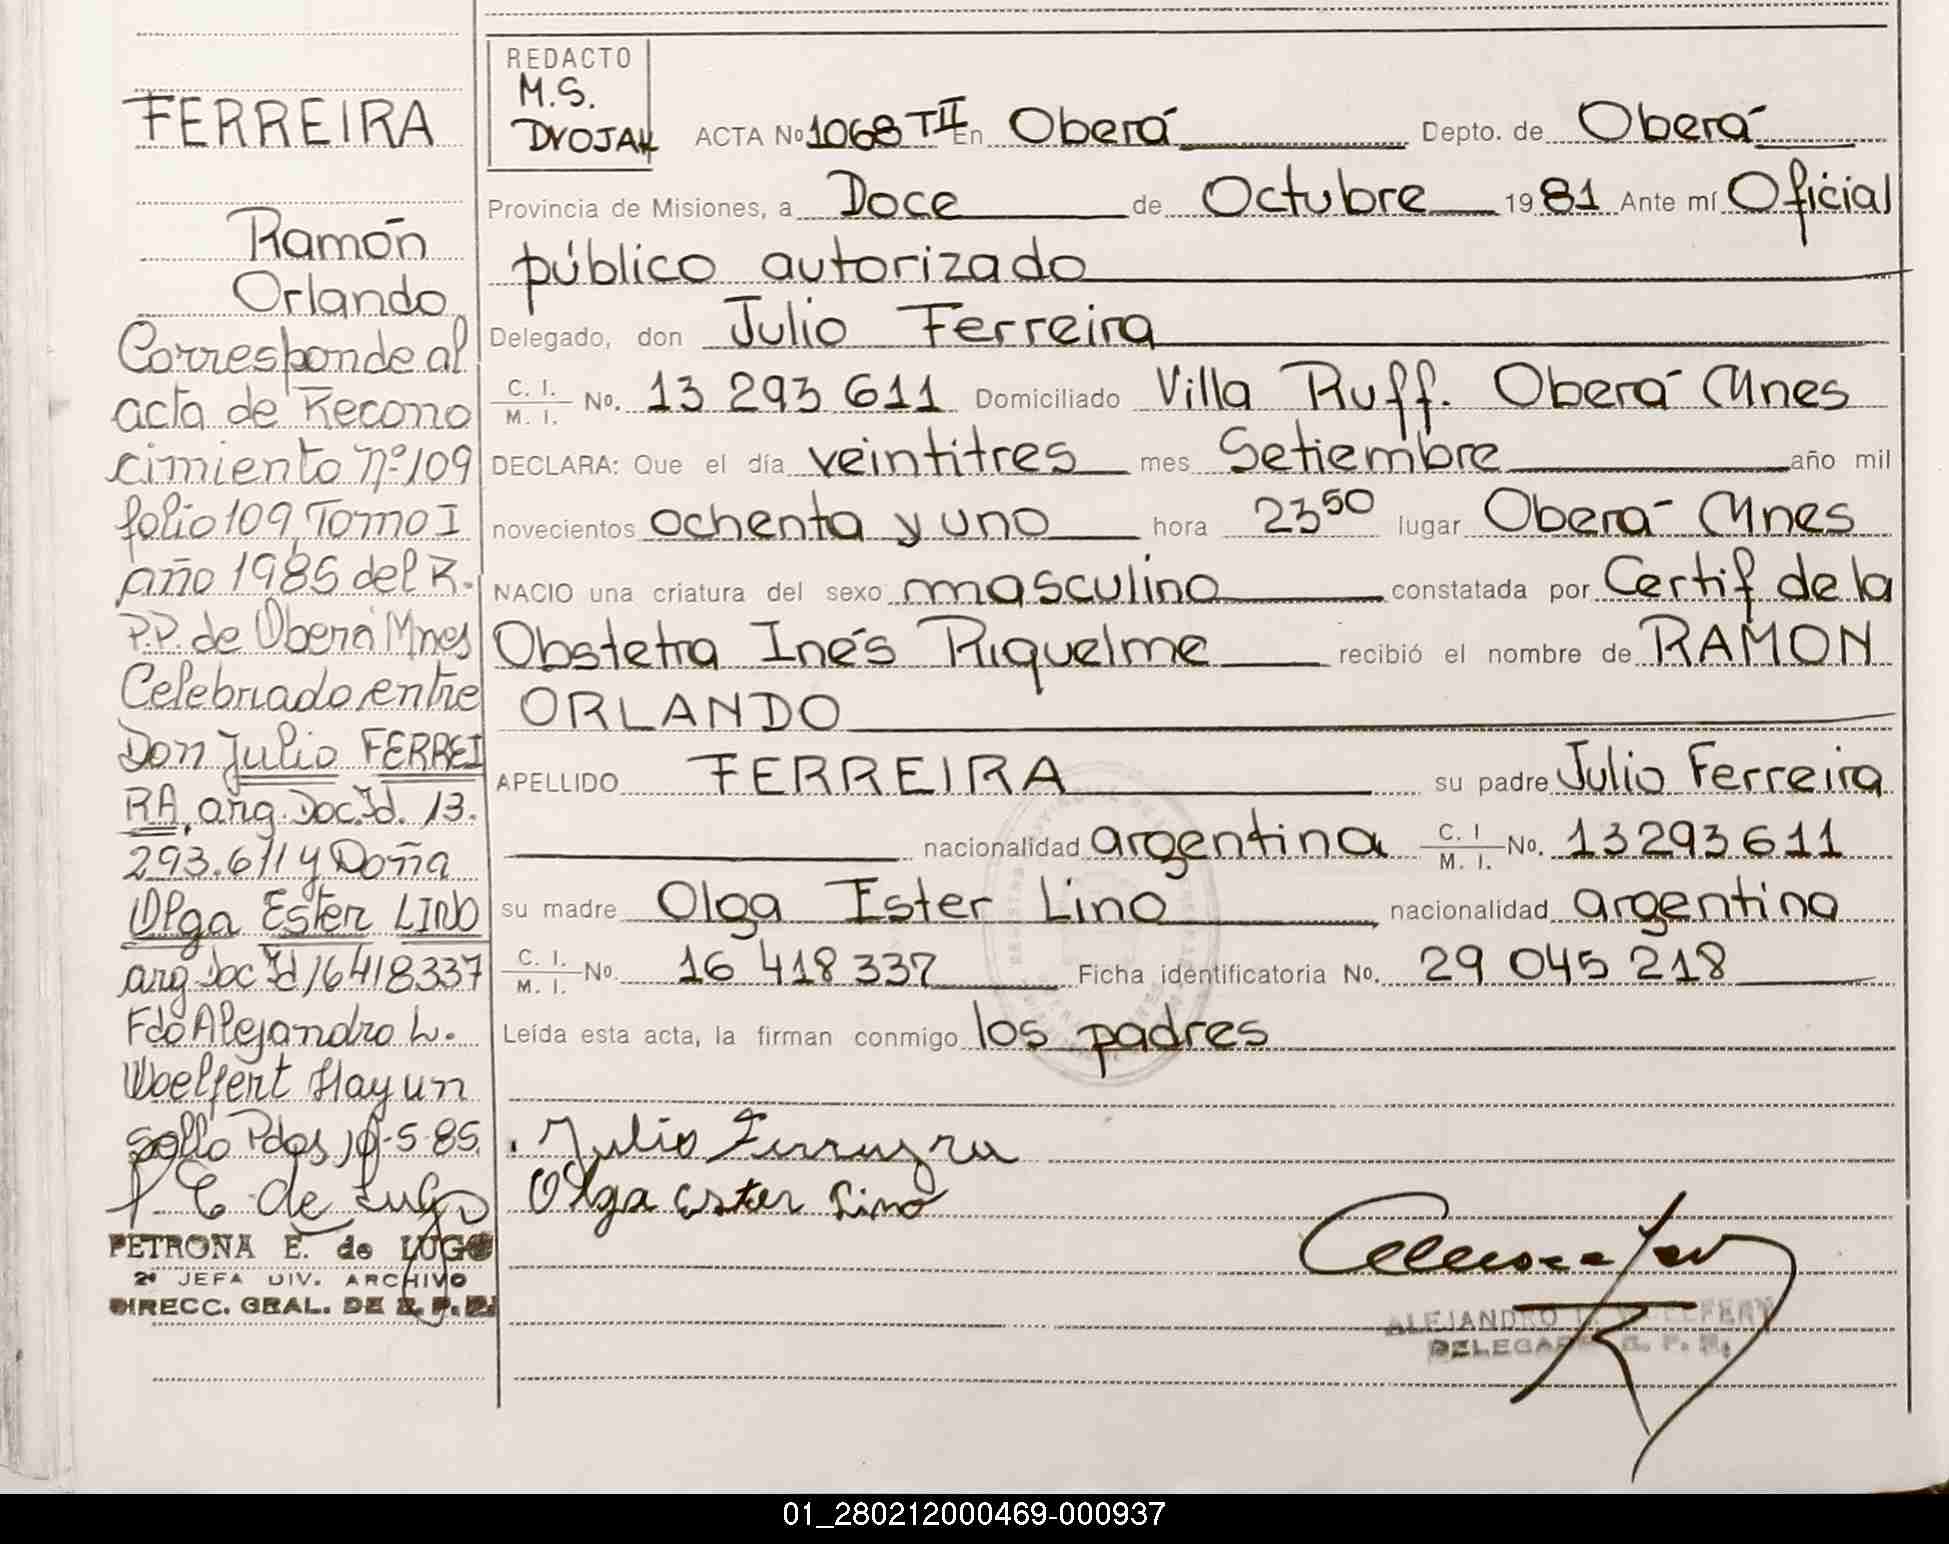 FERREIRA
Ramón
Orlando
Corresponde al
acta de Recono
cimiento Nº 109
folio 109 Tomo I
año 1985 del R.
P.P. de Oberá Mnes
Celebrado entre
Don Julio FERREI
RA, arg. Doc. Id. 13.
293.611 y Doña
Olga Ester LINO
arg Doc Id 16418337
Fdo Alejandro L.
Woelfert Hay un
sello Pdas 10-5-85.
PETRONA E. de LUGO
2ª JEFA DIV. ARCHIVO
DIRECC. GRAL. DE R. P. P.
REDACTO
M.S.
DVOJAK
ACTA Nº 1068 T II En Oberá Depto. de Oberá
Provincia de Misiones, a Doce de Octubre 1981 Ante mí Oficial
público autorizado
Delegado, don Julio Ferreira
C. I. / M. I. No. 13 293 611 Domiciliado Villa Ruff. Oberá Mnes
DECLARA: Que el día veintitres mes Setiembre año mil
novecientos ochenta y uno hora 23 50 lugar Oberá Mnes
NACIO una criatura del sexo masculino constatada por Certif de la
Obstetra Inés Riquelme recibió el nombre de RAMON
ORLANDO
APELLIDO FERREIRA su padre Julio Ferreira
nacionalidad argentina C. I / M. I. No. 13293611
su madre Olga Ester Lino nacionalidad argentina
C. I. / M. I. No. 16 418 337 Ficha identificatoria No. 29 045 218
Leída esta acta, la firman conmigo los padres
Julio Ferreyra
Olga Ester Lino
ALEJANDRO
DELEGADO R. P. P.
01_280212000469-000937